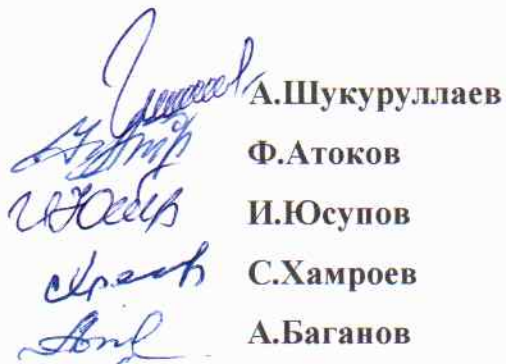 А.Шукуруллаев
Ф.Атоков
И.Юсупов
С.Хамроев
А.Баганов